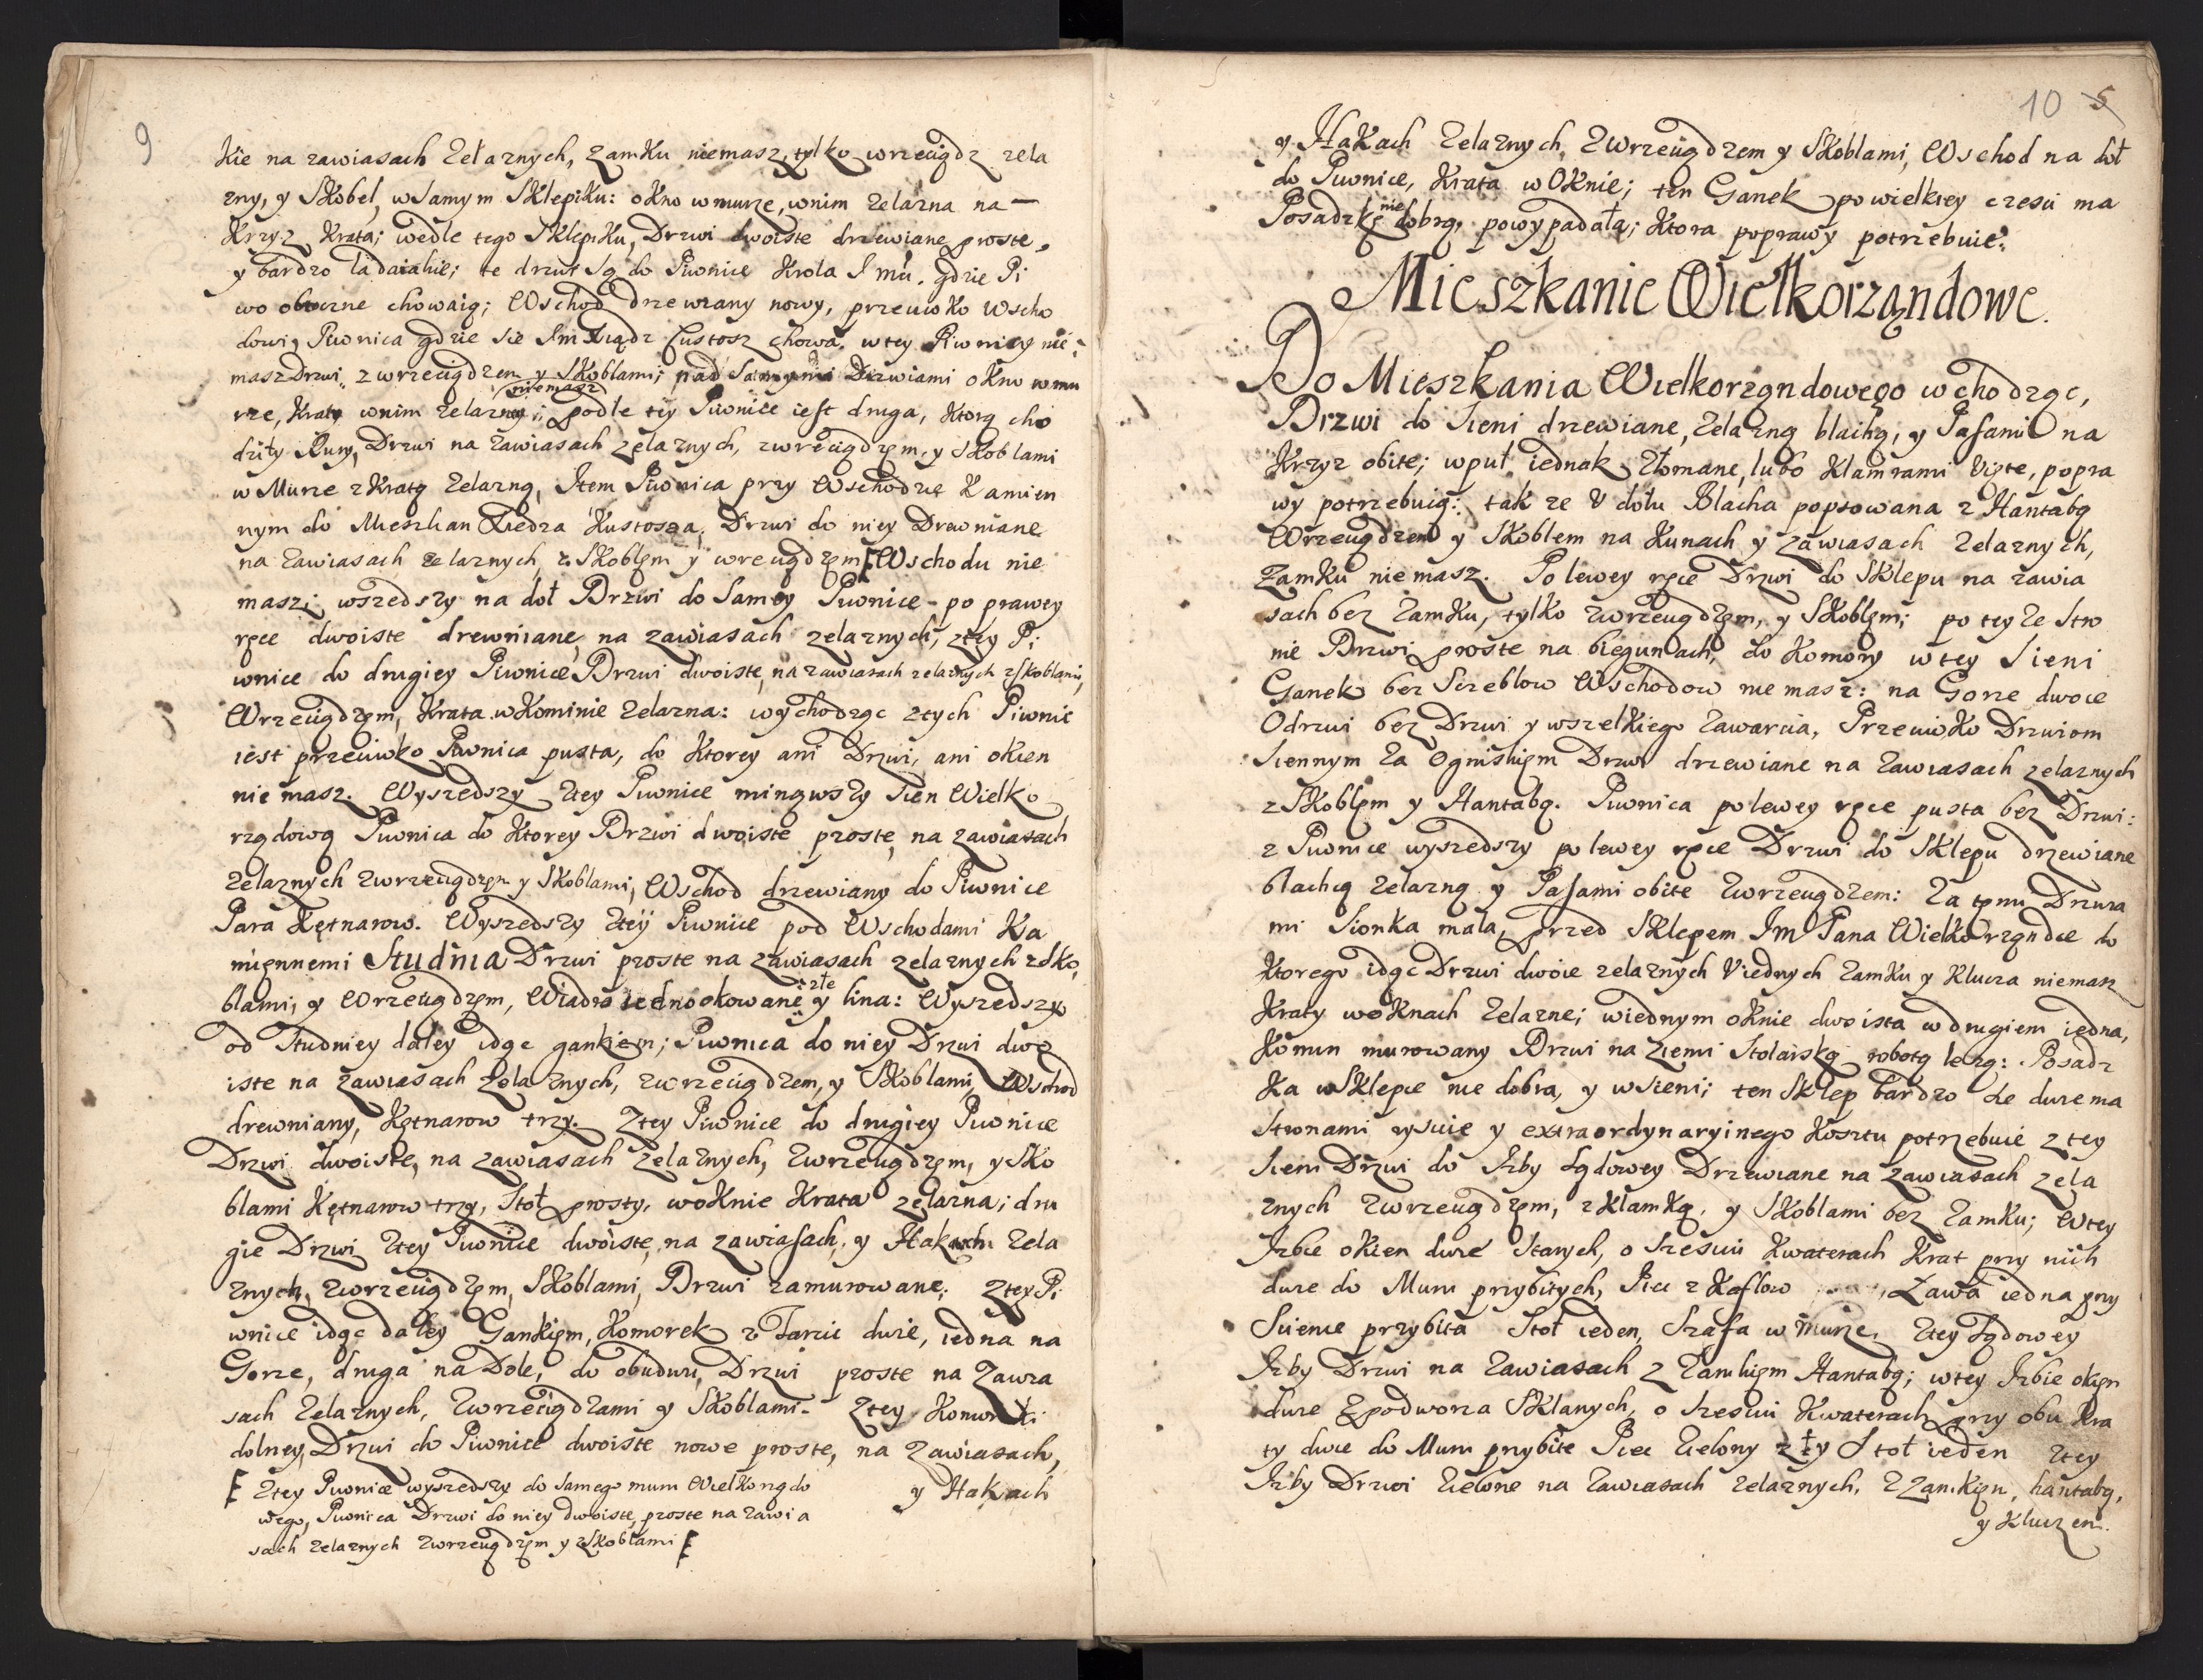 9
kie na zawiasach żelaznych, zamku niemasz, tylko wrzeciądz zela
zny, y Skobel, w Samym Sklepiku: okno w murze, w nim żelazna na—
Krzyz Krata; wedle tego Sklepiku, Drzwi dwoiste drzewiane proste,
y bardzo ladaiakie; te drzwi są do Piwnice Krola I mci. gdzie Pi
wo oboczne chowaią; Wschod drzewiany nowy, przeciwko Wscho
dowi, Piwnica gdzie sie Im Xiądz Custosz chowa, w tey Piwnicy nie:
masz Drzwi, z wrzeciądzem y Skoblami; nad Samymi Drzwiami okno w mu
rze, Kraty w nim żelazney niemasz; podle tey Piwnice iest druga, ktorą cho
dziły Rury, Drzwi na zawiasach żelaznych, z wreciądzem, y Skoblami
w Murze z Kratą żelazną, Item Piwnica przy Wschodzie Kamien
nym do Mieszkan Xiedza Kustosza, Drzwi do niey Drewniane
na zawiasach żelaznych, z Skoblem y wreciądzem [Wschodu nie
masz; wszedszy na doł Drzwi do Samey Piwnice - po prawey
ręce dwoiste drewniane, na zawiasach zelaznych, z tey Pi
wnice do drugiey Piwnice Drzwi dwoiste, na zawiasach zelaznych z skoblami,
Wrzeciądzem, Krata w Kominie żelazna: wychodząc z tych Piwnic
iest przeciwko Piwnica pusta, do Ktorey ani Drzwi, ani okien
nie masz. Wyszedszy z tey Piwnice minąwszy Sien Wielko
rządową Piwnica do Ktorey Drzwi dwoiste proste, na zawiasach
żelaznych z wrzeciądzem y Skoblami, Wschod drzewiany do Piwnice
Para Kętnarow. Wyszedszy z tey Piwnice pod Wschodami Ka
miennemi Studnia Drzwi proste na zawiasach zelaznych z sko,
blami, y Wrzeciądzem, Wiadro iedno okowane złe y lina: Wyszedszy
od Studniey daley idąc gankiem; Piwnica do niey Drzwi dwo
iste na zawiasach żelaznych, z wrzeciądzem, y Skoblami, Wschod
drewniany, Kętnarow trzy. Z tey Piwnice do drugiey Piwnice
Drzwi dwoiste, na zawiasach żelaznych, z wrzeciądzem, y Sko
blami Kętnarow trzy, Stoł prosty, w oknie Krata żelazna; dru
gie Drzwi z tey Piwnice dwoiste, na zawiasach, y Hakach żela
znych, z wrzeciądzem, Skoblami, Drzwi zamurowane; Z tey Pi
wnice idąc daley Gankiem, Komorek z Tarcic dwie, iedna na
Gorze, druga na Dole, do obudwu, Drzwi proste na zawia
sach żelaznych, z wrzeciądzami y Skoblami. Z tey Komorki
dolney, Drzwi do Piwnice dwoiste nowe proste, na zawiasach,
y Hakach
[ Z tey Piwnice wyszedszy do Samego muru Wielkorządo
wego, Piwnica Drzwi do niey dwoiste, proste na zawia
sach żelaznych z wrzeciądzem y z Skoblami [
10 5
y Hakach żelaznych, z Wrzeciądzem y Skoblami, Wschod na doł
do Piwnice, Krata w Oknie; ten Ganek po wielkiey czesci ma
Posadzkę nie dobrą, powypadałą; Ktora poprawy potrzebuie.
Mieszkanie Wielkorządowe.
Do Mieszkania Wielkorządowego wchodząc,
Drzwi do Sieni drzewiane, żelazną blachą, y Pasami na
Krzyz obite; w puł iednak złomane, lubo Klamrami ujęte, popra
wy potrzebuią: takze V dołu Blacha popsowana z Hantabą
Wrzeciądzem y Skoblem na Kunach y zawiasach żelaznych,
Zamku nie masz. Po lewey ręce Drzwi do Sklepu na zawia
sach bez zamku, tylko z wrzeciądzem, y Skoblem; po teyże stro
nie Drzwi proste na biegunach, do Komory w tey Sieni
Ganek bez Szczeblow Wschodow nie masz: na Gorze dwoie
Odrzwi bez Drzwi y wszelkiego zawarcia, Przeciwko Drzwiom
Siennym za Ogniskiem Drzwi drzewiane na zawiasach żelaznych
z Skoblem y Hantabą. Piwnica po lewey ręce pusta bez Drzwi:
z Piwnice wyszedszy po lewey ręce Drzwi do Sklepu drzewiane
blachą żelazną y Pasami obite z wrzeciądzem: za temi Drzwia
mi Sionka mala, przed Sklepem Im Pana Wielkorządce do
Ktorego idąc Drzwi dwoie zelaznych V iednych zamku y Klucza niemasz
Kraty w oknach żelazne; w iednym oknie dwoista w drugiem iedna,
Komin murowany Drzwi na ziemi Stolarską robotą leżą: Posadz
ka w Sklepie nie dobra, y w sieni; ten Sklep bardzo złe dwiema
stronami ryscie y extraordynaryinego Kosztu potrzebuie z tey
Sieni Drzwi do Izby Sądowey Drzewiane na zawiasach żela
znych z wrzeciądzem, z Klamką, y Skoblami bez zamku; W tey
Izbie okien dwie Starych, o Szesciu Kwaterach Krat przy nich
dwie do Muru przybitych, Piec z Kaflow , Ława iedna przy
Scienie przybita Stoł ieden, Szafa w murze, z tey Sądowey
Izby Drzwi na zawiasach z zamkiem Hantabą; w tey Izbie okien
dwie z podworza Sklanych, o Szesciu Kwaterach przy obu Kra
ty dwie do Muru przybite Piec zielony zły Stoł ieden z tey
Izby Drzwi zielone na zawiasach żelaznych, z zamkiem, hantabą,
y Kluczem.